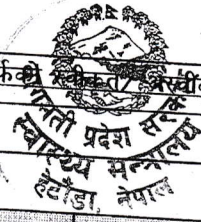 र्फको स्वीकृत
बागमती प्रदेश सरकार
स्वास्थ्य मन्त्रालय
हेटौंडा, नेपाल